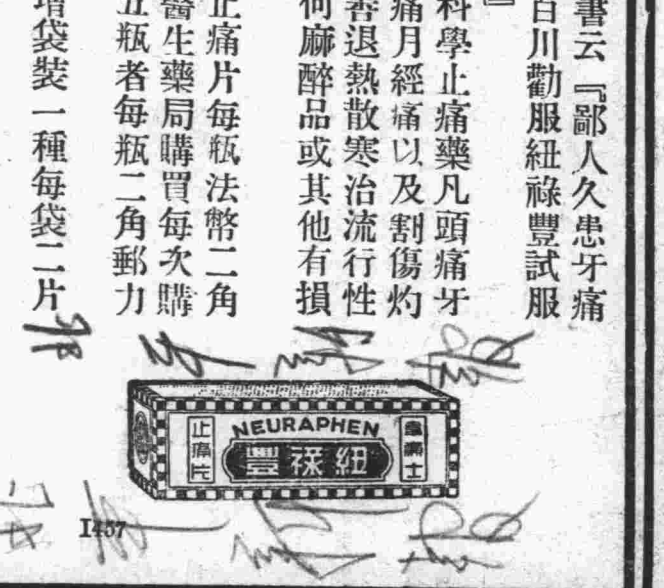 書云『鄙人久患牙痛
百川勸服紐祿豐試服
』
科學止痛藥凡頭痛牙
痛月經痛以及割傷灼
善退熱散寒治流行性
何麻醉品或其他有損
止痛片每瓶法幣二角
醫生藥局購買每次購
五瓶者每瓶二角郵力
增袋裝一種每袋二片
NEURAPHEN
紐祿豐
止痛片
1457